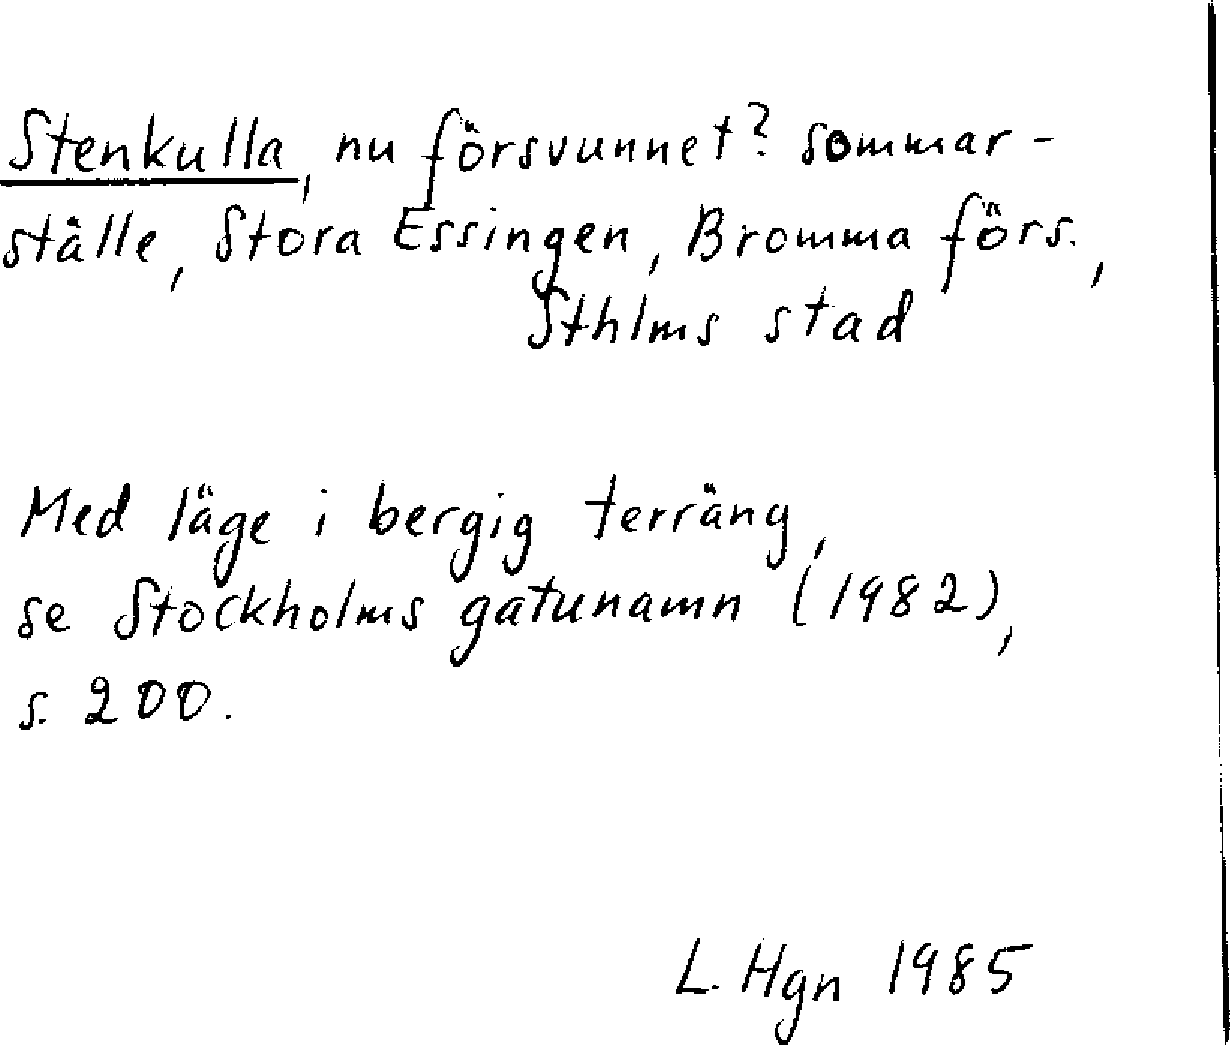 Stenkulla, nu försvunnet? sommar-
ställe, Stora Essingen, Bromma förs.,
Sthlms stad
Med läge i bergig terräng,
se Stockholms gatunamn (1982),
s. 200.
L. Hgn 1985